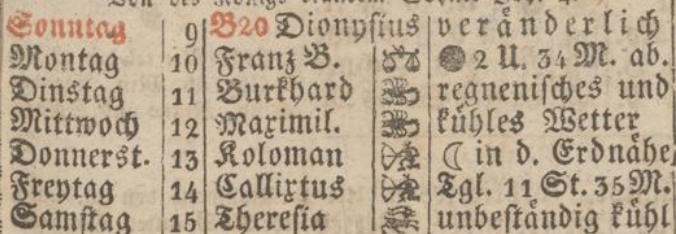 Sonntag 9 B20 Dionysius veränderlich
Montag 10 Franz B. 2 U. 34 M. ab.
Dinstag 11 Burkhard regnenisches und
Mittwoch 12 Maximil. kühles Wetter
Donnerst. 13 Koloman ☾ in d. Erdnähe
Freytag 14 Callixtus Tgl. 11 St. 35 M.
Samstag 15 Theresia unbeständig kühl